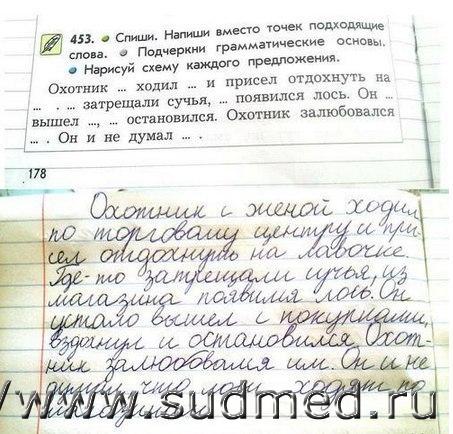 453. Спиши. Напиши вместо точек подходящие
слова. Подчеркни грамматические основы.
Нарисуй схему каждого предложения.
Охотник ... ходил ... и присел отдохнуть на
... . ... затрещали сучья, ... появился лось. Он ...
вышел ..., ... остановился. Охотник залюбовался
... . Он и не думал ... .
178
Охотник с женой ходил
по торговому центру и при
сел отдохнуть на лавочке.
Где-то затрещали сучья, из
магазина появился лось. Он
устало вышел с покупками,
вздогнул и остановился. Охот-
ник залюбовался им. Он и не
думал что лоси ходят по
//www.sudmed.ru